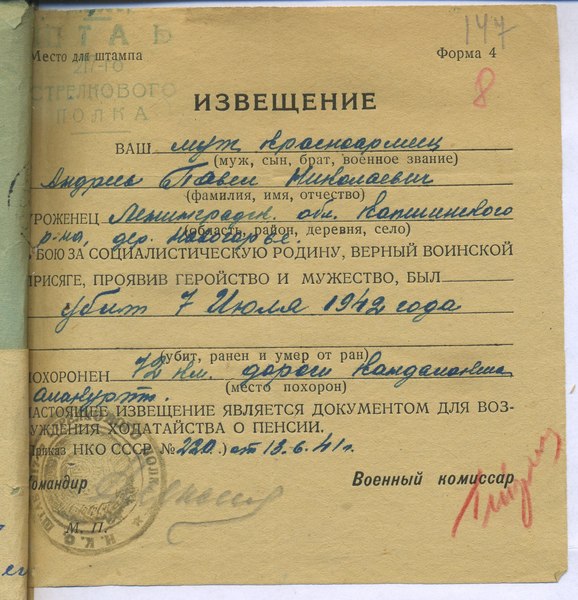 147
ШТАБ
Место для штампа
Форма 4
217-го
8
СТРЕЛКОВОГО
ПОЛКА
ИЗВЕЩЕНИЕ
ВАШ муж красноармеец
(муж, сын, брат, военное звание)
Павел Николаевич
(фамилия, имя, отчество)
УРОЖЕНЕЦ Ленинградск. обл. Капшинского
(область, район, деревня, село)
р-на, дер.
БОЮ ЗА СОЦИАЛИСТИЧЕСКУЮ РОДИНУ, ВЕРНЫЙ ВОИНСКОЙ
ПРИСЯГЕ, ПРОЯВИВ ГЕРОЙСТВО И МУЖЕСТВО, БЫЛ
убит 7 Июля 1942 года
(убит, ранен и умер от ран)
ПОХОРОНЕН 72 км. дороги Кандалакша
(место похорон)
Алакуртти.
НАСТОЯЩЕЕ ИЗВЕЩЕНИЕ ЯВЛЯЕТСЯ ДОКУМЕНТОМ ДЛЯ ВОЗ-
БУЖДЕНИЯ ХОДАТАЙСТВА О ПЕНСИИ.
(Приказ НКО СССР № 220.) от 13.6.41г.
Командир
Военный комиссар
М. П.